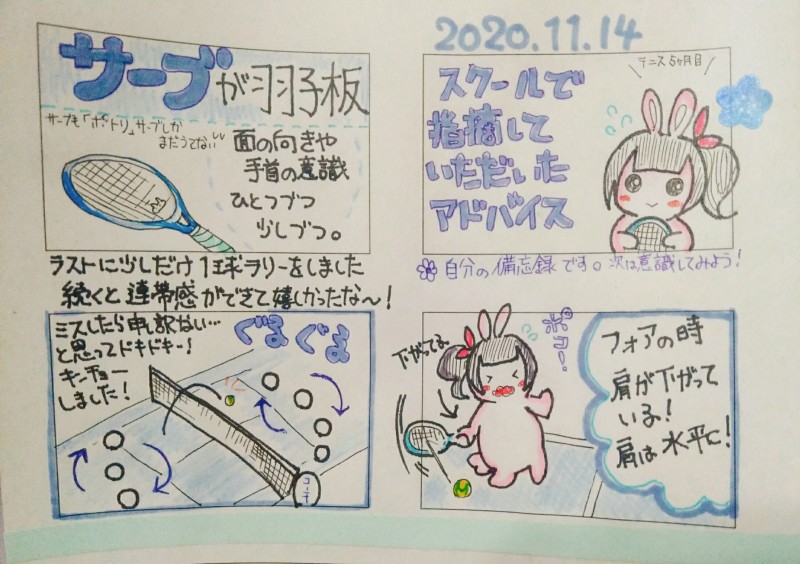 2020.11.14
テニス5ヶ月目
スクールで
指摘して
いただいた
アドバイス
自分の備忘録です。次は意識してみよう!
フォアの時
肩が下がって
いる!
肩は水平に!
下がってる
ポコー!
サーブが羽子板
サーブも「ポトリ」サーブしか
まだうてない
面の向きや
手首の意識
ひとつづつ
少しづつ。
ラストに少しだけ1球ラリーをしました
続くと連帯感ができて嬉しかったな〜!
ミスしたら申し訳ない…
と思ってドキドキー!
キンチョー
しました!
ぐるぐる
コーチ